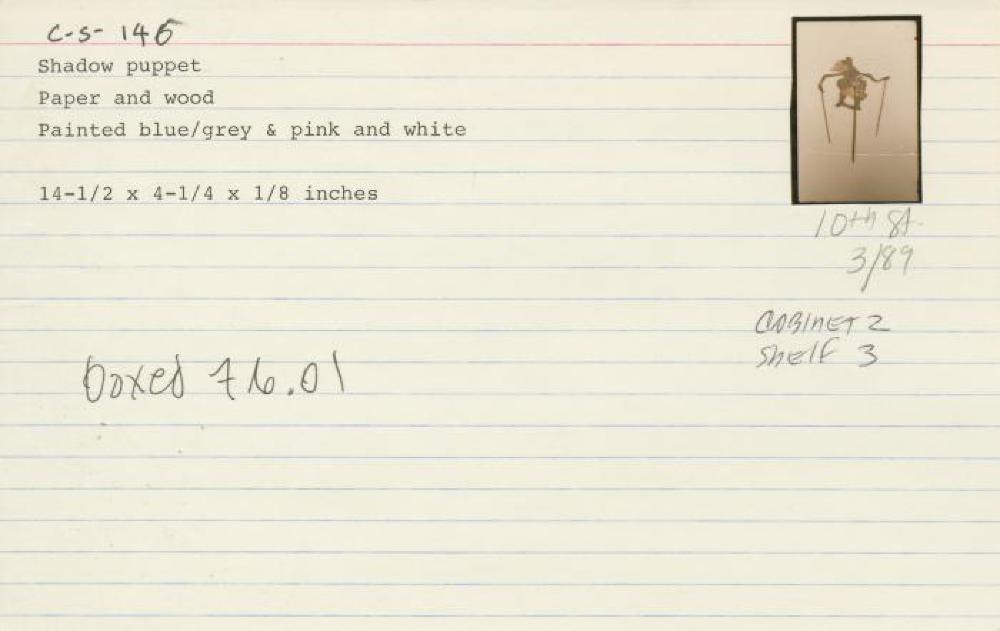 C-S- 146
Shadow puppet
Paper and wood
Painted blue/grey & pink and white
14-1/2 x 4-1/4 x 1/8 inches
10th St.
3/89
CABINET 2
Shelf 3
boxed 76.01